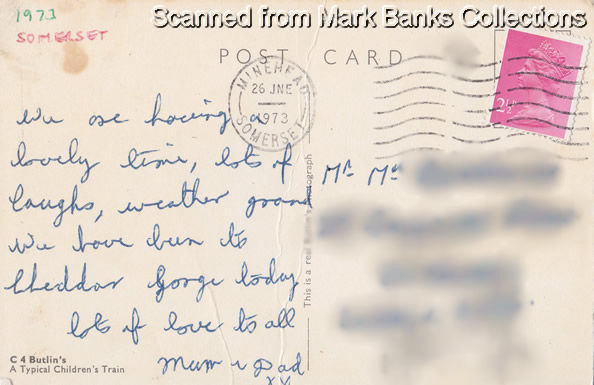 Scanned from Mark Banks Collections
1973
SOMERSET
POST CARD
MINEHEAD
26 JNE
1973
SOMERSET
2½P
We are having a
lovely time, lots of
laughs, weather grand
We have been to
Cheddar Gorge today
lots of love to all
Mum & Dad
XX
This is a real Butlin's photograph
Mr Mrs
C 4 Butlin's
A Typical Children's Train